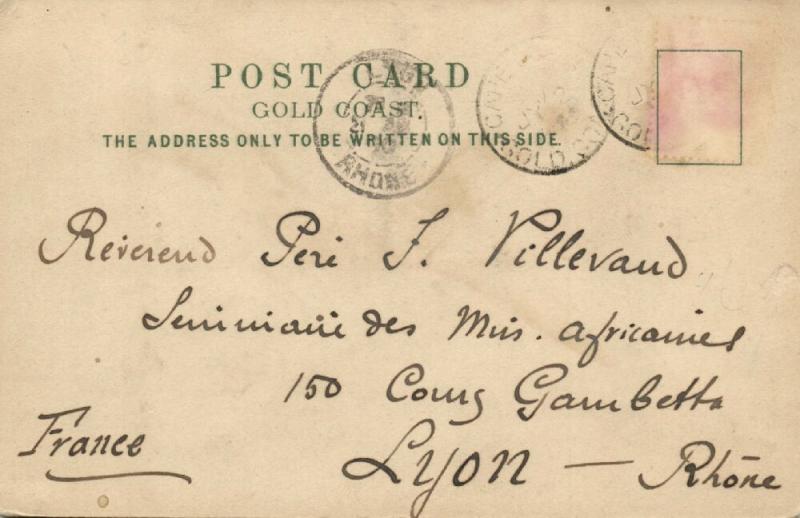 POST CARD
GOLD COAST.
THE ADDRESS ONLY TO BE WRITTEN ON THIS SIDE.
RHONE
CAPE
GOLD CO
CAPE
GO
Révérend Père F. Villevaud
Séminaire des Miss. Africaines
150 Cours Gambetta
Lyon — Rhône
France